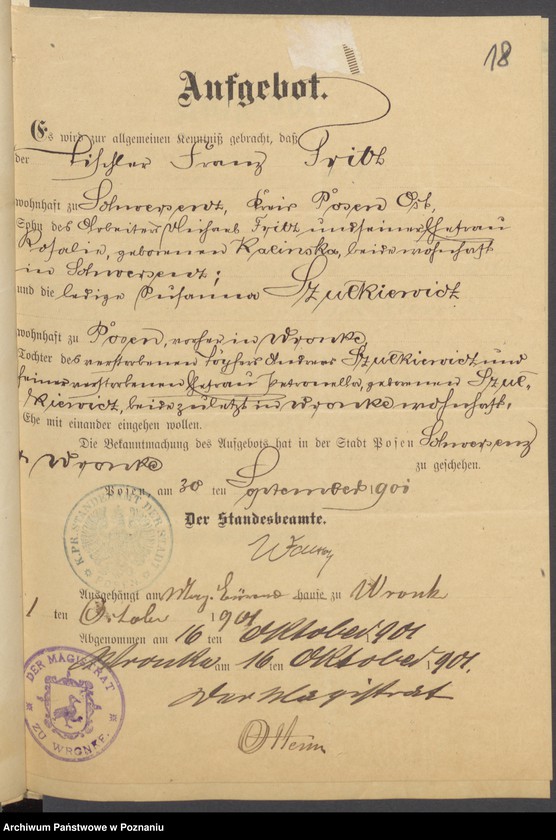 18
Aufgebot.
Es wird zur allgemeinen Kenntniß gebracht, daß
der Tischler Franz Tribt
wohnhaft zu Schwersenz, Kreis Posen Ost,
Sohn des Arbeiters Michael Tribt und seiner Ehefrau
Rosalie, geborenen Kalinska, beide wohnhaft
in Schwersenz;
und die ledige Susanna Szulkiewicz
wohnhaft zu Posen, vorher in Wronke
Tochter des verstorbenen Töpfers Andreas Szulkiewicz und
seiner verstorbenen Ehefrau Petronella, geborenen Szul-
kiewicz, beide zuletzt in Wronke wohnhaft,
Ehe mit einander eingehen wollen.
Die Bekanntmachung des Aufgebots hat in der Stadt Posen Schwersenz
Wronke zu geschehen.
Posen, am 30 ten September 1901
Der Standesbeamte.
K. PR. STANDESAMT DER STADT POSEN
Ausgehängt am Mag. hause zu Wronk
1 ten October 1901
Abgenommen am 16 ten Oktober 1901
Wronke am 16 ten Oktober 1901.
Der Magistrat
DER MAGISTRAT ZU WRONKE.
Archiwum Państwowe w Poznaniu